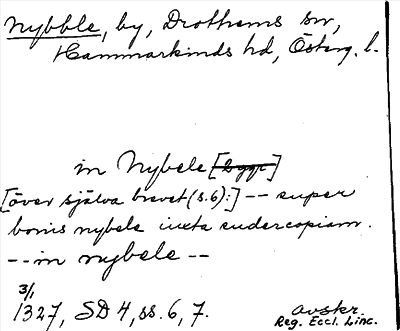 Nybble, by, Drothems sn,
Hammarkinds hd, Österg. l.
in Nybele [bygge]
[över själva brevet (s.6):] -- super
bonis nybele iuxta sudercopiam.
-- in nybele --
3/1
1327, SD 4, ss. 6, 7.
avskr.
Reg. Eccl. Linc.